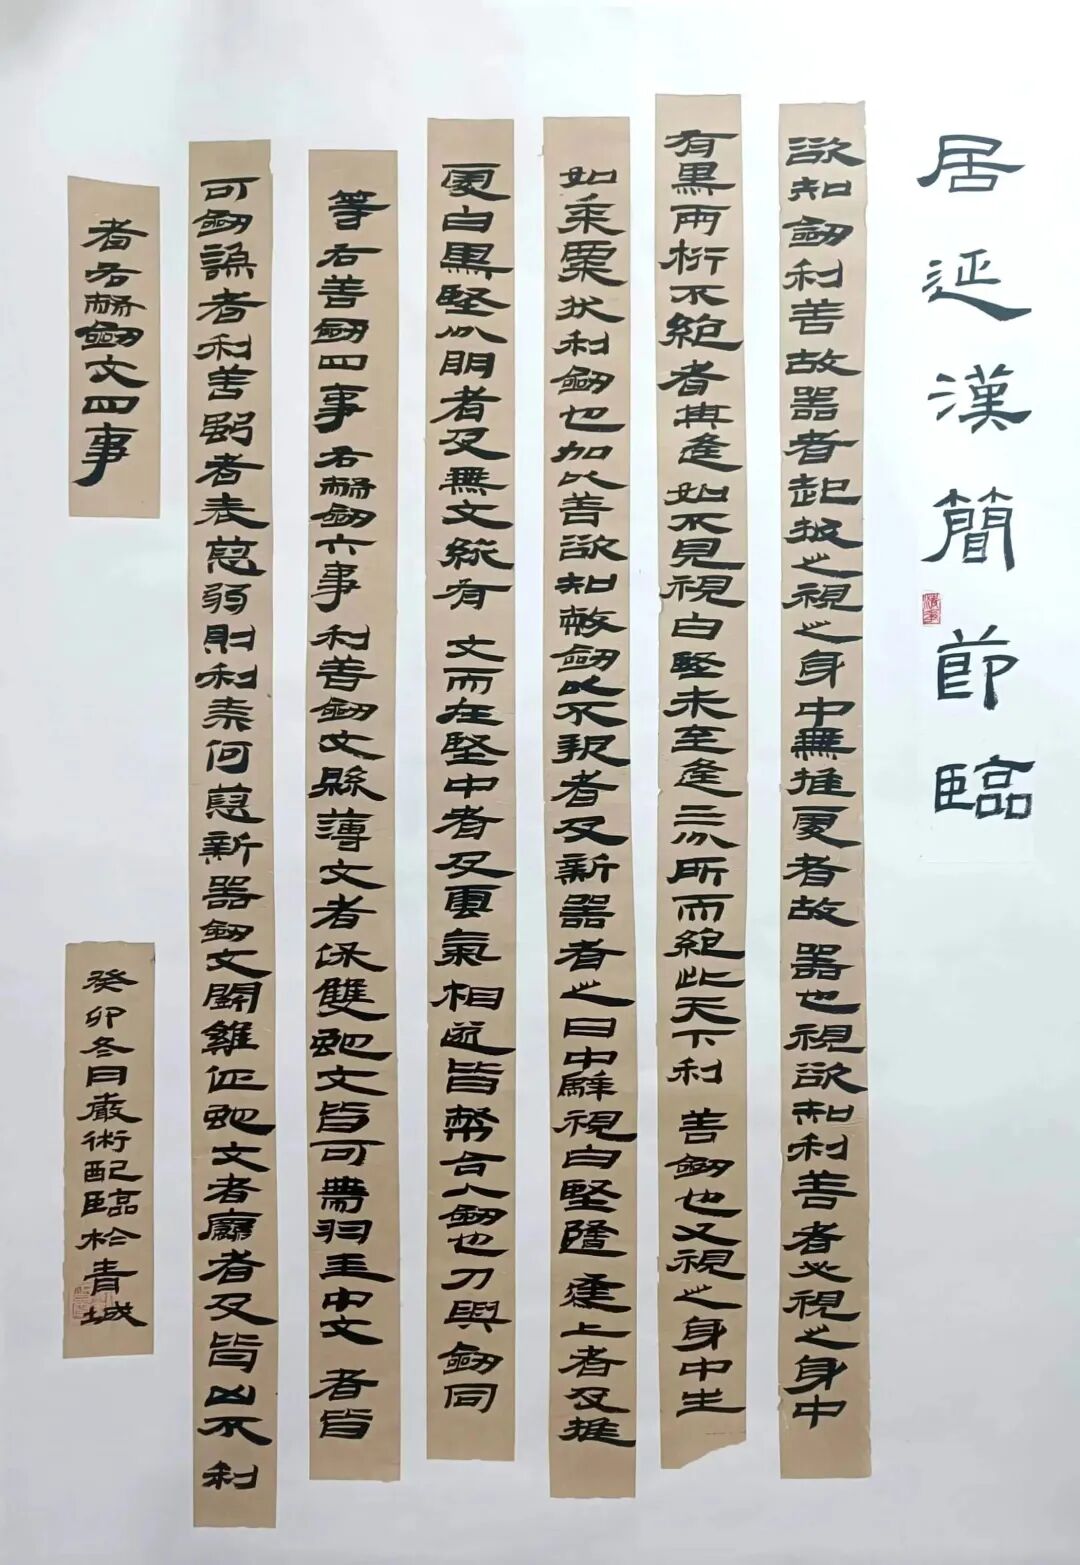 居延漢簡節臨
欲知劒利善故器者起拔之視之身中無推處者故器也視欲知利善者必視之身中
有黑兩桁不絕者其逢如不見視白堅未至逢三分所而絕此天下利善劒也又視之身中生
如黍粟狀利劒也加以善欲知幣劒以不報者及新器者之日中騂視白堅隨逢上者及推
處白黑堅分明者及無文縱有文而在堅中者及雲氣相遂皆幣合人劒也刀與劒同
等右善劒四事右幣劒六事利善劒文縣薄文者保雙蛇文皆可帶羽圭中文者皆
可劒謙者利善強者表惡弱則利奈何惡新器劒文鬭雞佂蛇文者麤者及皆凶不利
者右幣劒文四事
癸卯冬月嚴術配臨於青城